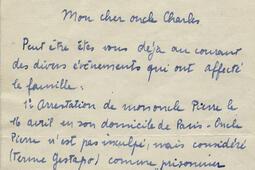 Mon cher oncle Charles
Peut être êtes vous déja au courant
des divers événements qui ont affecté
la famille :
1° Arrestation de mon oncle Pierre le
16 avril en son domicile de Paris - Oncle
Pierre n'est pas inculpé, mais considéré
(terme Gestapo) comme "prisonnier